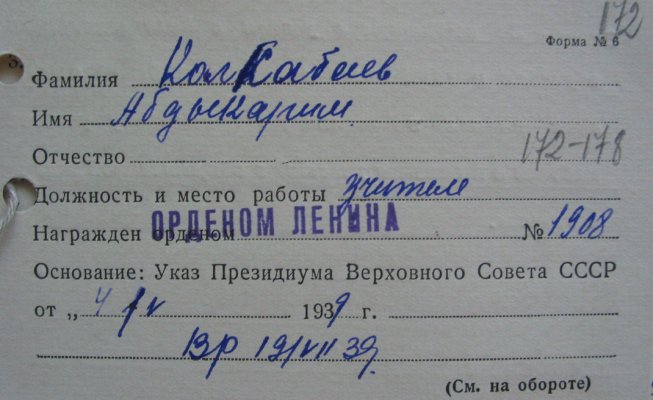 172
Форма № 6
3.
Фамилия Колкабаев
Имя Абдыкарим
Отчество
172-178
Должность и место работы учителе
Награжден орденом ОРДЕНОМ ЛЕНИНА № 1908
Основание: Указ Президиума Верховного Совета СССР
от „ 4 / V 1939 г.
Вр 19/VII 39.
(См. на обороте)